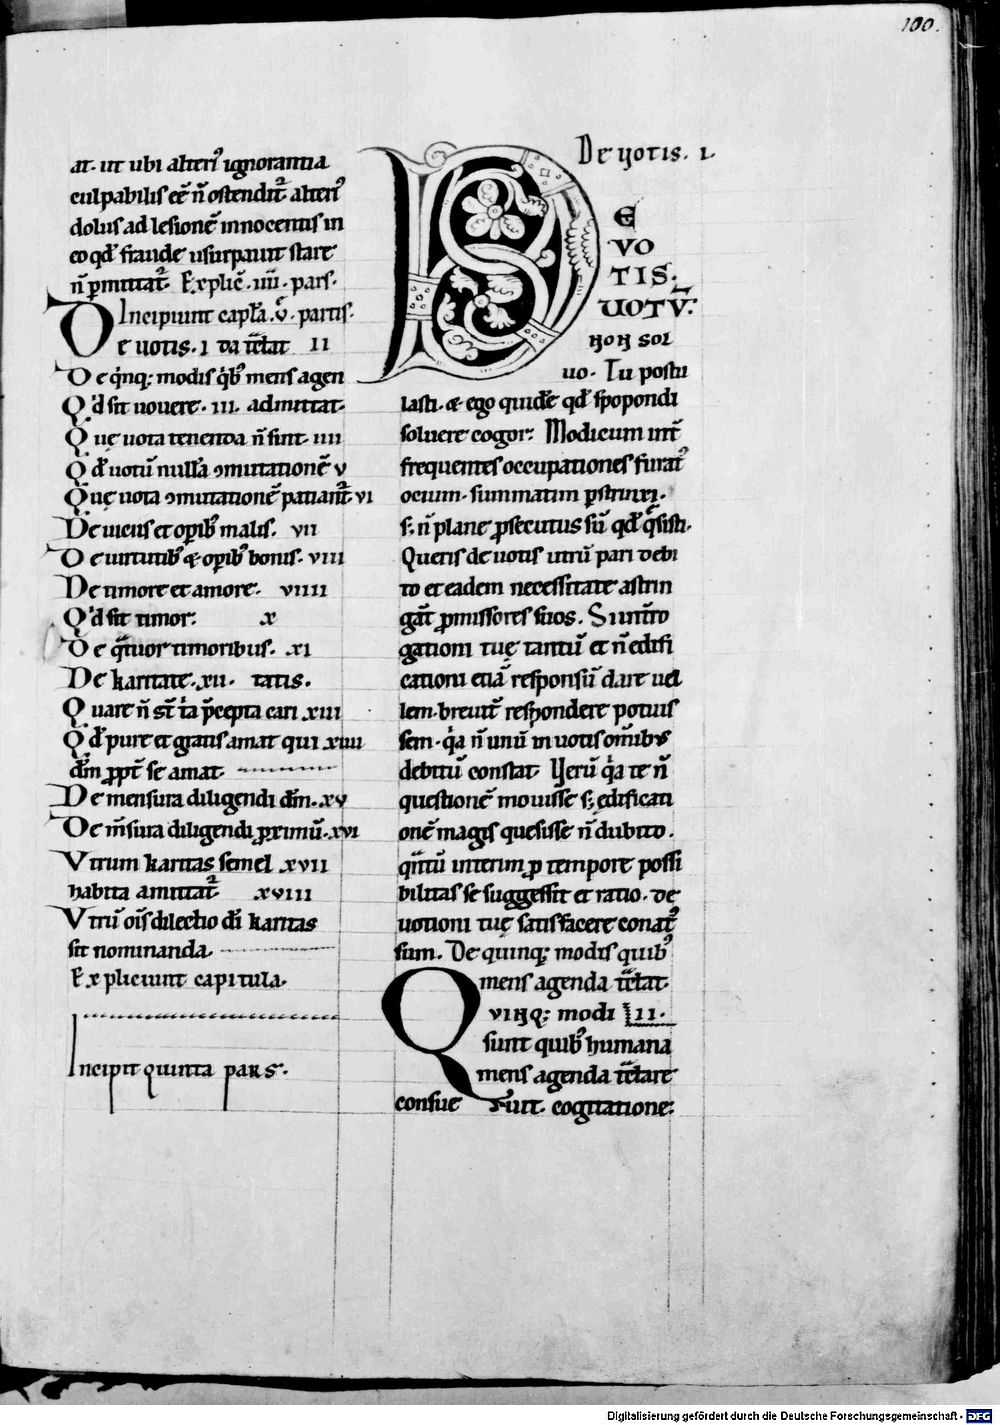 100.
at. ut ubi alteri᾽ ignorantia
culpabilis eē n̄ ostendit᷑ alteri᾽
dolus ad lesionē innocentis in
eo qd̄ fraude usurpauit stare
n̄ ꝑmittat᷑. Explic̄. iiii. pars.
Incipiunt capl̄a. v̄. partis.
De uotis. I da t̄ēat II
De q̇nq; modis q̇b᾽ mens agen
Q᾽d sit uouere. III. admittat.
Quę uota tenenda n̄ sint. IIII
Qd̄ uotū nulla ꝯmutationē V
Quę uota ꝯmutationē patiant᷑ VI
De uiciis et oꝑib᾽ malis. VII
De uirtutib᾽ & oꝑib᾽ bonis. VIII
De timore et amore. VIIII
Q᾽d sit timor: X
De q̄tuor timoribus. XI
De karitate. XII. tatis.
Quare n̄ st̄ ita p̄cepta cari XIII
Qd̄ pure et gratis amat qui XIIII
dm̄ ꝓpt̄ se amat.
De mensura diligendi dm̄. XV
De m̄sura diligendi ꝓximū. XVI
Vtrum karitas semel XVII
habita amittat᷑ XVIII
Vtrū oīs dilectio dī karitas
sit nominanda.
Expliciunt capitula.
Incipit quinta pars.
De uotis. I
DE
VO
TIS.
UOTV̄:
non sol
uo. Tu postu
lasti. & ego quidē qd̄ spopondi
soluere cogor: Modicum int̄
frequentes occupationes furat᾽
ocium. summatim ꝑstrinxi.
s; n̄ plane ꝓsecutus sū qd̄ q̄sisti.
Queris de uotis utrū pari debi
to et eadem necessitate astrin
gāt ꝓmissores suos. Si int̄ro
gationi tuę tantū et n̄ edifi
cationi etiā responsū dare uel
lem. breuit̄ respondere potuis
sem. q̇a n̄ unū in uotis om̄ibus
debitū constat. Verū q̇a te n̄
questionē mouisse s; edificati
onē magis quesisse n̄ dubito.
qn̄tū interim ꝓ tempore possi
bilitas se suggessit et ratio. de
uotioni tuę satisfacere conat᾽
sum. De quinq; modis quib᾽
mens agenda t̄ēat.
QVINQ; modi II.
sunt quib᾽ humana
mens agenda t̄ēare
consueuit. cogitatione:
Digitalisierung gefördert durch die Deutsche Forschungsgemeinschaft - DFG